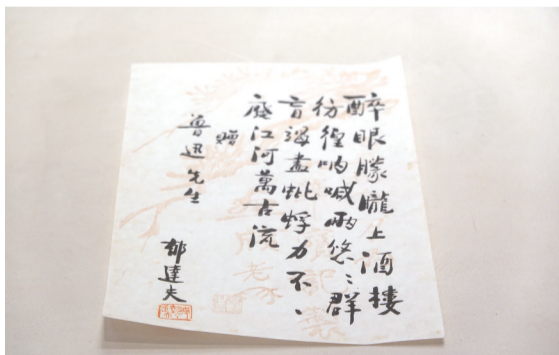 醉眼朦朧上酒樓
彷徨吶喊兩悠〻群
盲竭盡蚍蜉力不、
廢江河萬古流
贈
魯迅先生
郁達夫